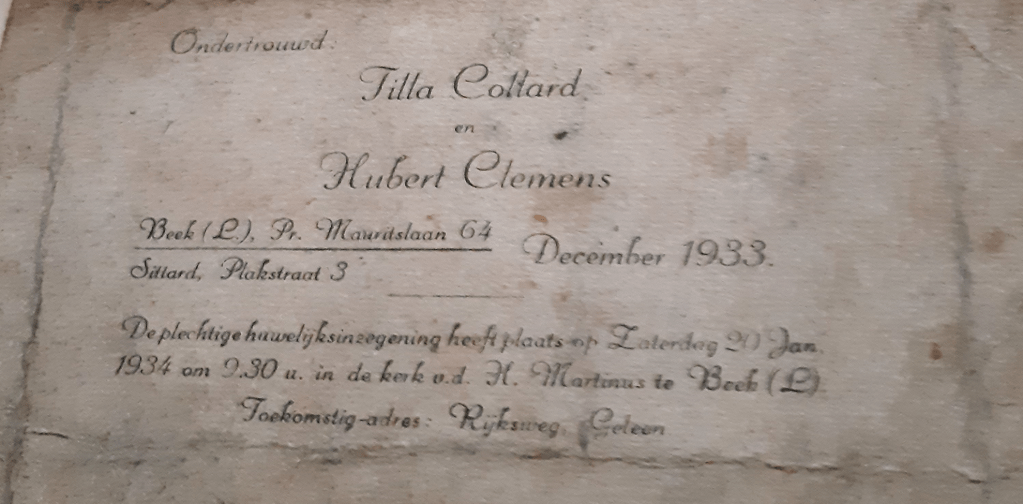 Ondertrouwd:
Tilla Collard
en
Hubert Clemens
Beek (L.), Pr. Mauritslaan 64
Sittard, Plakstraat 3
December 1933.
De plechtige huwelijksinzegening heeft plaats op Zaterdag 20 Jan.
1934 om 9.30 u. in de kerk v.d. H. Martinus te Beek (L)
Toekomstig-adres: Rijksweg, Geleen